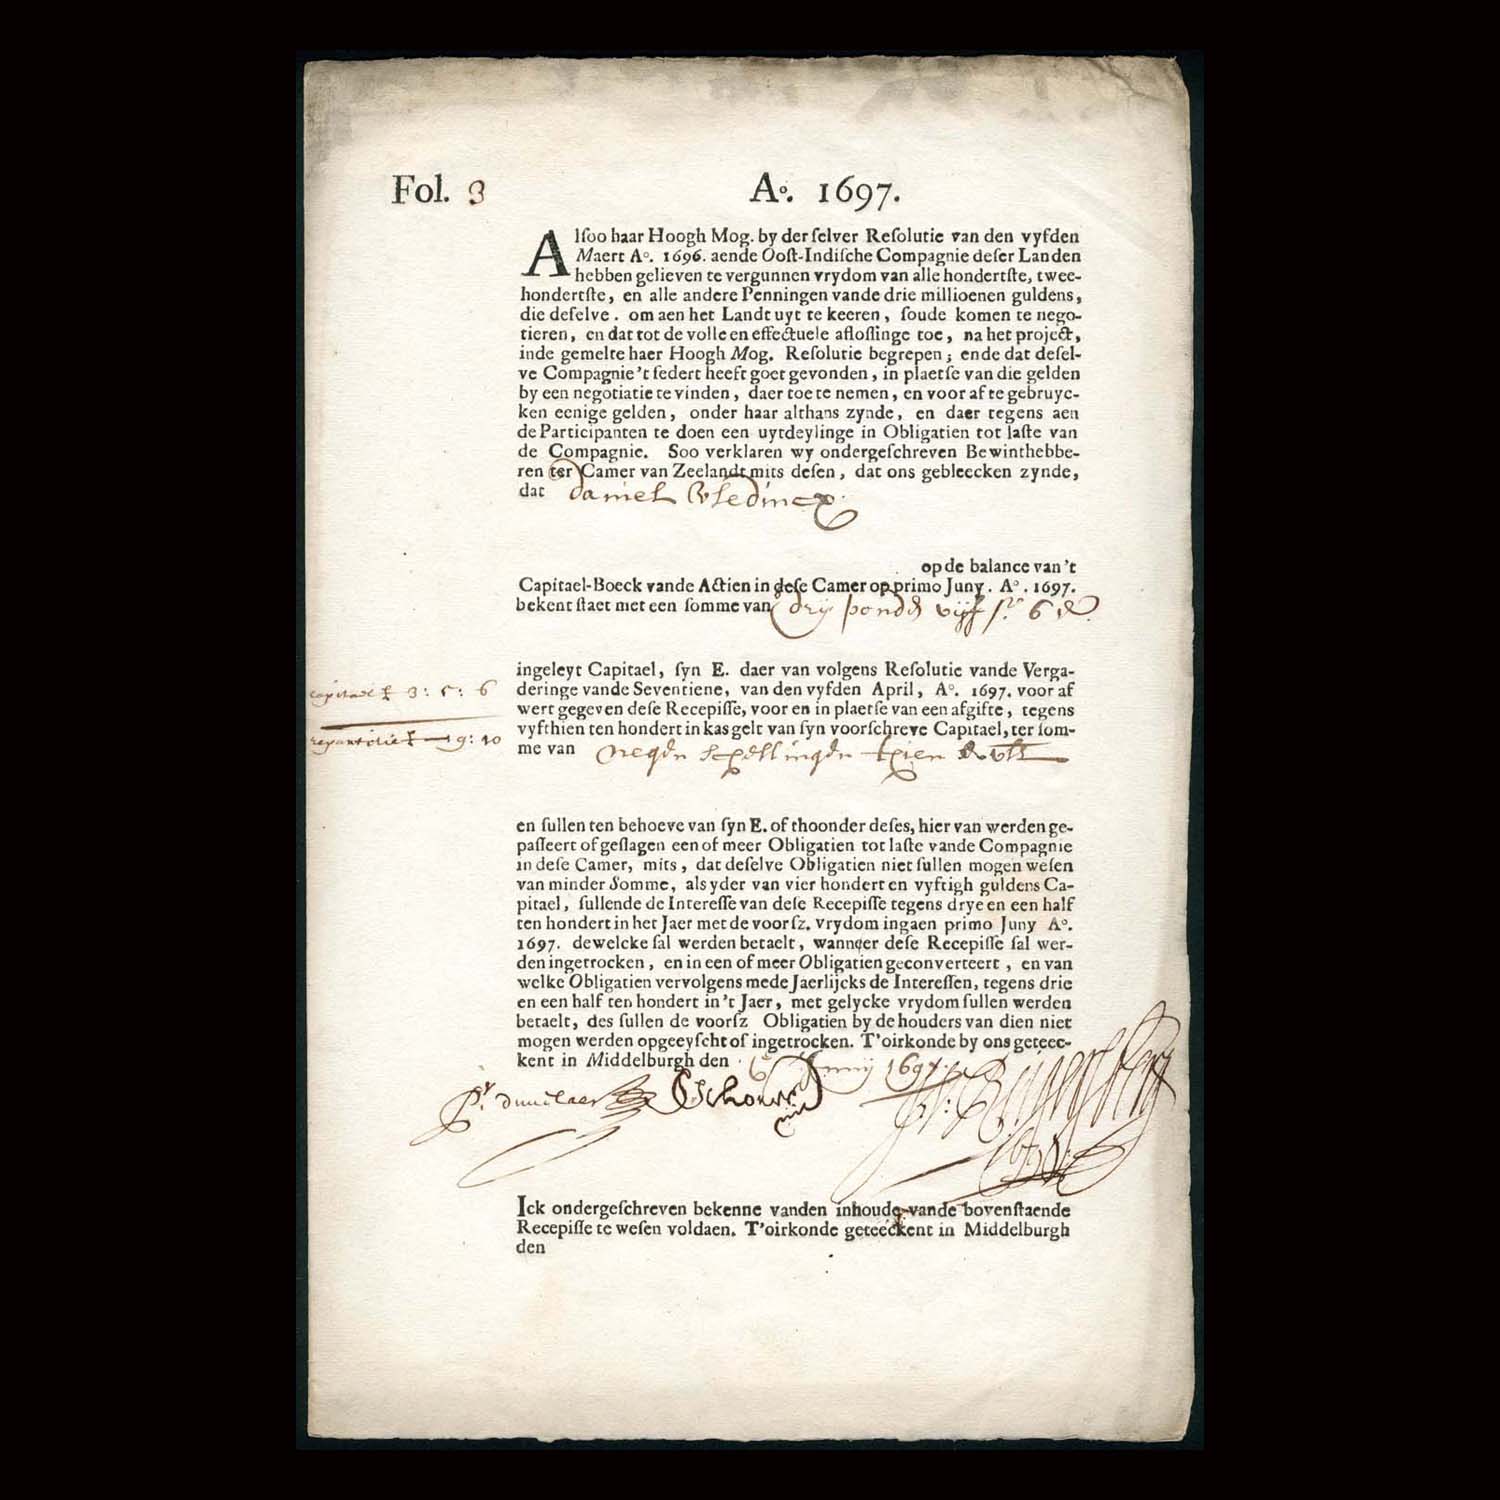 Fol. 3
Aº. 1697.
Alſoo haar Hoogh Mog. by der ſelver Reſolutie van den vyfden
Maert Aº. 1696. aende Ooſt-Indiſche Compagnie deſer Landen
hebben gelieven te vergunnen vrydom van alle hondertſte, twee-
hondertſte, en alle andere Penningen vande drie millioenen guldens,
die deſelve. om aen het Landt uyt te keeren, ſoude komen te nego-
tieren, en dat tot de volle en effectuele afloſſinge toe, na het project,
inde gemelte haer Hoogh Mog. Reſolutie begrepen; ende dat deſel-
ve Compagnie 't ſedert heeft goet gevonden, in plaetſe van die gelden
by een negotiatie te vinden, daer toe te nemen, en voor af te gebruyc-
ken eenige gelden, onder haar althans zynde, en daer tegens aen
de Participanten te doen een uytdeylinge in Obligatien tot laſte van
de Compagnie. Soo verklaren wy ondergeſchreven Bewinthebbe-
ren ter Camer van Zeelandt mits deſen, dat ons gebleecken zynde,
dat Daniel
op de balance van 't
Capitael-Boeck vande Actien in deſe Camer op primo Juny. Aº. 1697.
bekent ſtaet met een ſomme van drij ponden vijf ſ. 6 d.
ingeleyt Capitael, ſyn E. daer van volgens Reſolutie vande Verga-
capitael £ 3: 5: 6
deringe vande Seventiene, van den vyfden April, Aº. 1697. voor af
wert gegeven deſe Recepiſſe, voor en in plaetſe van een afgifte, tegens
vyfthien ten hondert in kas gelt van ſyn voorſchreve Capitael, ter ſom-
repartitie £ — 9: 10
me van negen schellingen thien
en ſullen ten behoeve van ſyn E. of thoonder deſes, hier van werden ge-
paſſeert of geſlagen een of meer Obligatien tot laſte vande Compagnie
in deſe Camer, mits, dat deſelve Obligatien niet ſullen mogen weſen
van minder Somme, als yder van vier hondert en vyftigh guldens Ca-
pitael, ſullende de Intereſſe van deſe Recepiſſe tegens drye en een half
ten hondert in het Jaer met de voorſz. vrydom ingaen primo Juny Aº.
1697. dewelcke ſal werden betaelt, wanneer deſe Recepiſſe ſal wer-
den ingetrocken, en in een of meer Obligatien geconverteert, en van
welke Obligatien vervolgens mede Jaerlijcks de Intereſſen, tegens drie
en een half ten hondert in 't Jaer, met gelycke vrydom ſullen werden
betaelt, des ſullen de voorſz Obligatien by de houders van dien niet
mogen werden opgeeyſcht of ingetrocken. T'oirkonde by ons geteec-
kent in Middelburgh den 6e Junij 1697.
Ick ondergeſchreven bekenne vanden inhoude vande bovenſtaende
Recepiſſe te weſen voldaen. T'oirkonde geteeckent in Middelburgh
den